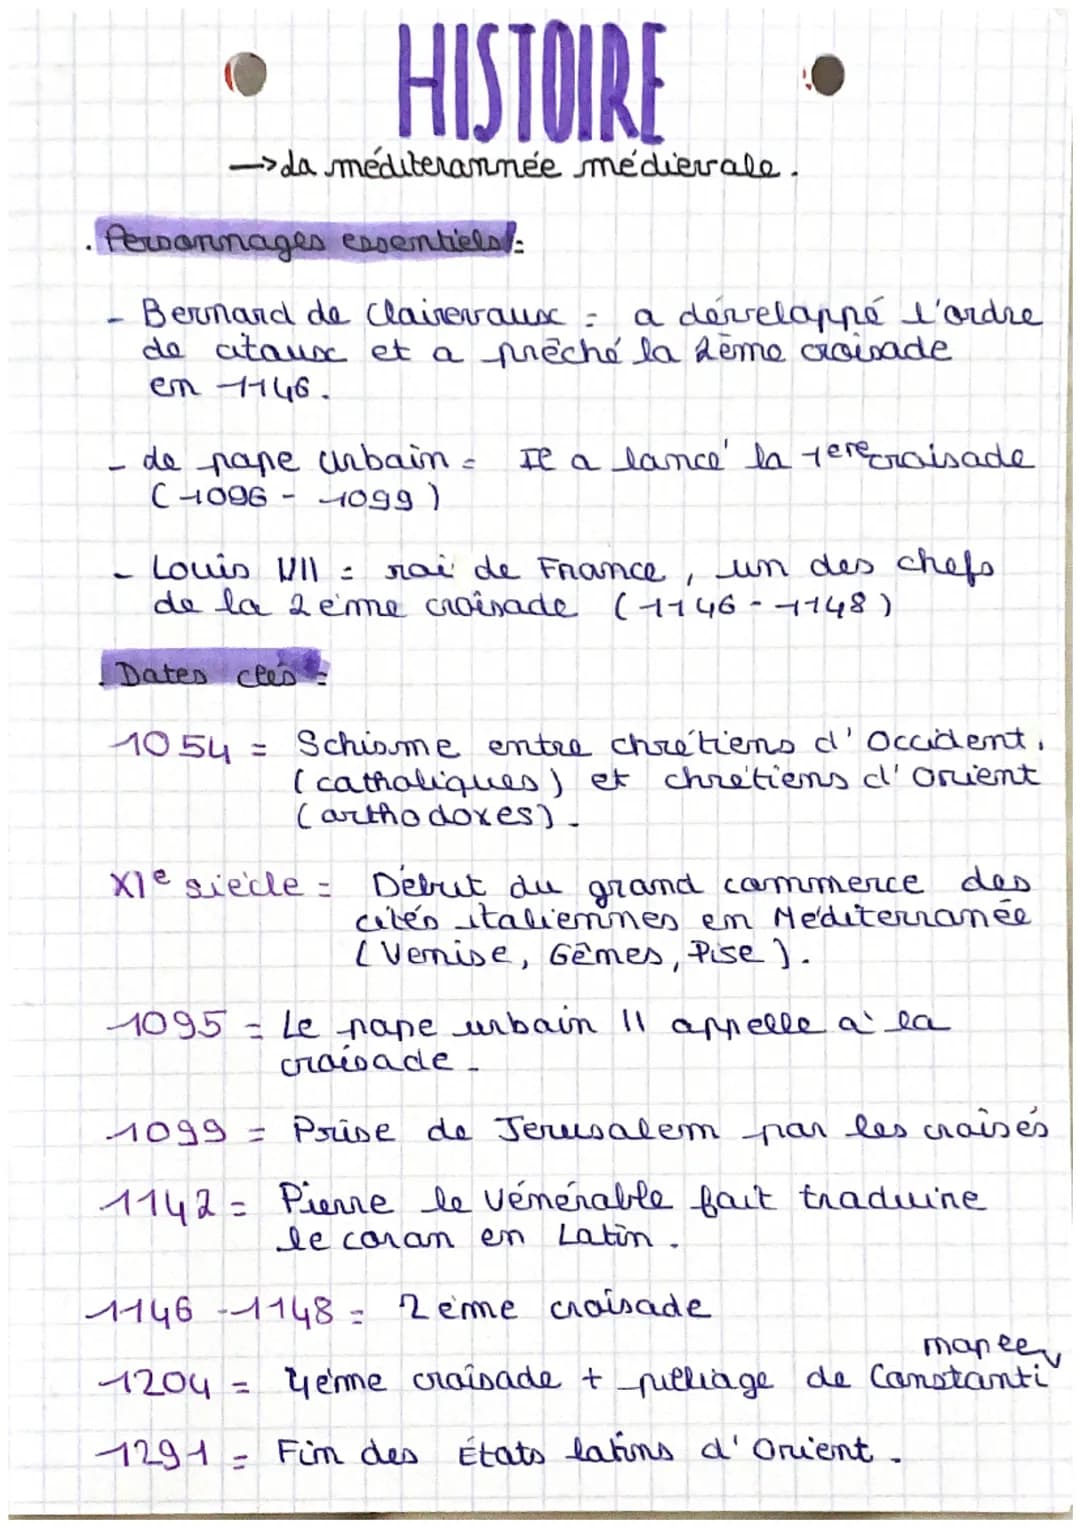 HISTOIRE
→ La méditerannée médievale.
. Personnages essentiels :
- Bernard de Clairevaux = a dévelappé l'ordre
de citaux et a prêché la 2ème croisade
en 1146.
- Le pape urbain = Il a lancé la 1ere croisade
(1096 - 1099)
- Louis VII = roi de France, un des chefs
de la 2ème croisade (1146 - 1148)
. Dates clés =
1054 = Schisme entre chrétiens d'Occident.
(catholiques) et chrétiens d'Orient
(orthodoxes).
XIe siècle = Début du grand commerce des
cités italiennes en Méditerranée
(Venise, Gênes, Pise).
1095 = Le pape urbain II appelle à la
croisade.
1099 = Prise de Jerusalem par les croisés
1142 = Pierre le Vénérable fait traduire
le coran en Latin.
1146 - 1148 = 2ème croisade
nople
1204 = 4ème croisade + pilliage de Constanti
1291 = Fin des États latins d'Orient.